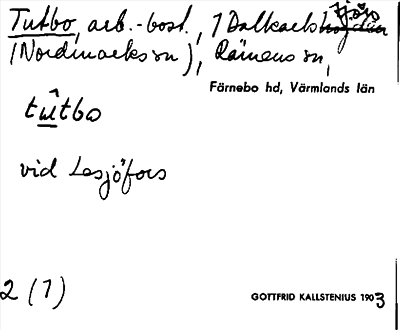 Tutbo, arb.-bost., 1 Dalkarls
(Nordmarks sn), Rämens sn,
Färnebo hd, Värmlands län
tûtbo
vid Lesjöfors
2 (1)
GOTTFRID KALLSTENIUS 1903